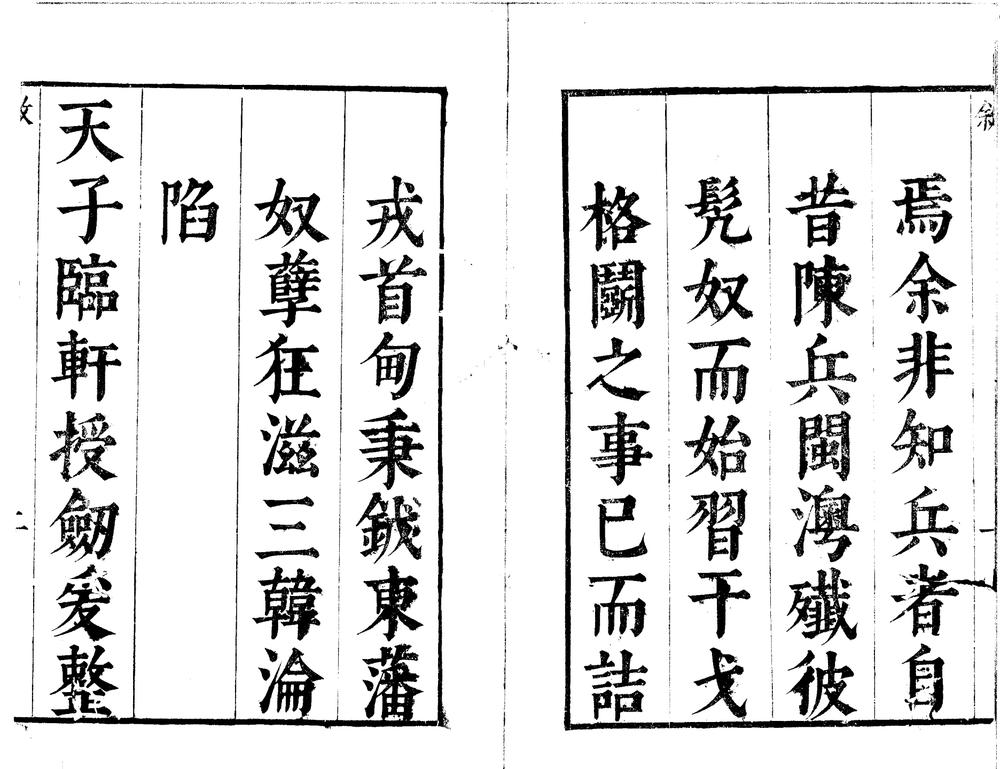 焉余非知兵者自
昔陳兵閩殲彼
髠奴而始習干戈
格鬬之事已而詰
戎首甸秉鉞東藩
奴孽狂滋三韓淪
陷
天子臨軒授劒爰整